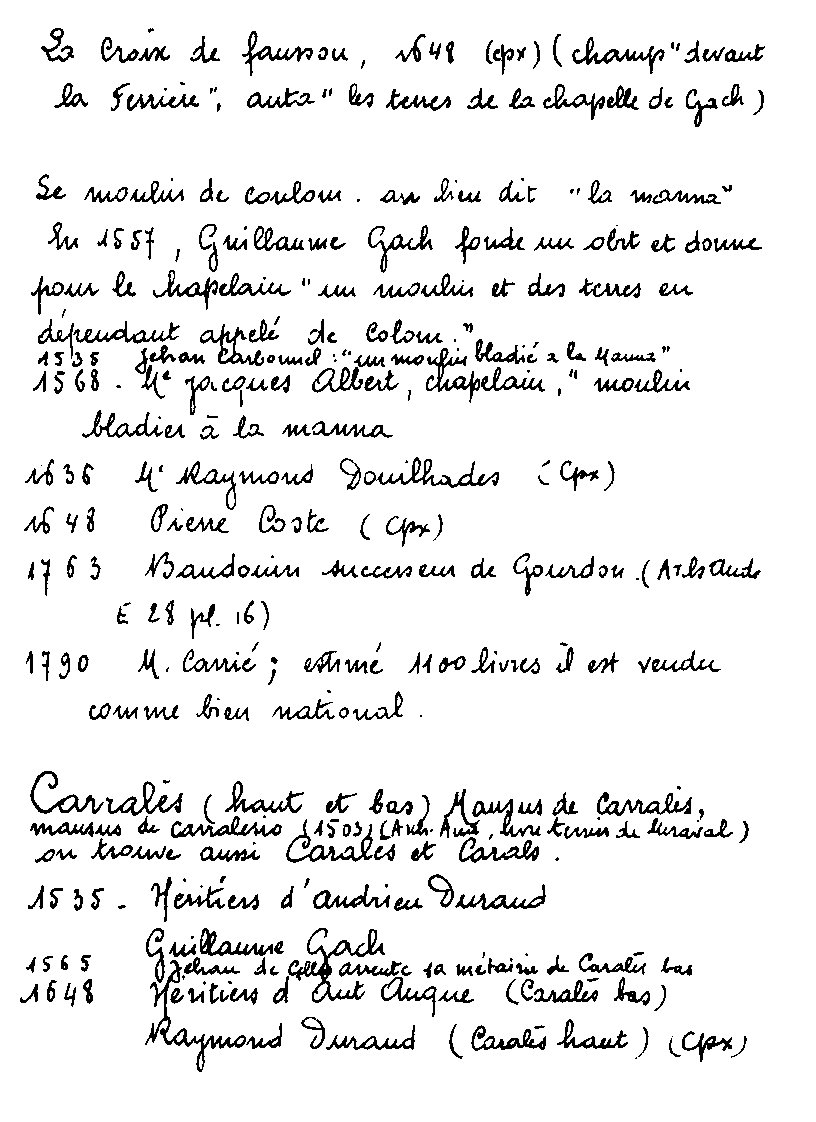 La Croix de faussou, 1648 (cpx) (champ "devant
la Ferrière", auta "les terres de la chapelle de Gach)
Le moulin de coulom. au lieu dit "la manna"
En 1557, Guillaume Gach fonde un obit et donne
pour le chapelain "un moulin et des terres en
dépendant appelé de Colom."
1535 Jehan Carbonnel : "un moulin bladié a la Manna"
1568. Me Jacques Albert, chapelain, "moulin
bladier à la manna
1636 Me Raymond Douilhades (Cpx)
1648 Pierre Coste (Cpx)
1763 Baudouin successeur de Gourdon. (Arch Aude
E 28 pl. 16)
1790 M. Carrié ; estimé 1100 livres il est vendu
comme bien national.
Carralès (haut et bas) Mansus de Carralès,
mansus de carralerio (1503) (Arch. Aude, livre terrier de Muraval)
on trouve aussi Caralès et Carals.
1535. Héritiers d'Andrieu Durand
Guillaume Gach
1565 Jehan de arrente sa métairie de Caralès bas
1648 Héritiers d'Ant Auque (Caralès bas)
Raymond Durand (Caralès haut) (Cpx)